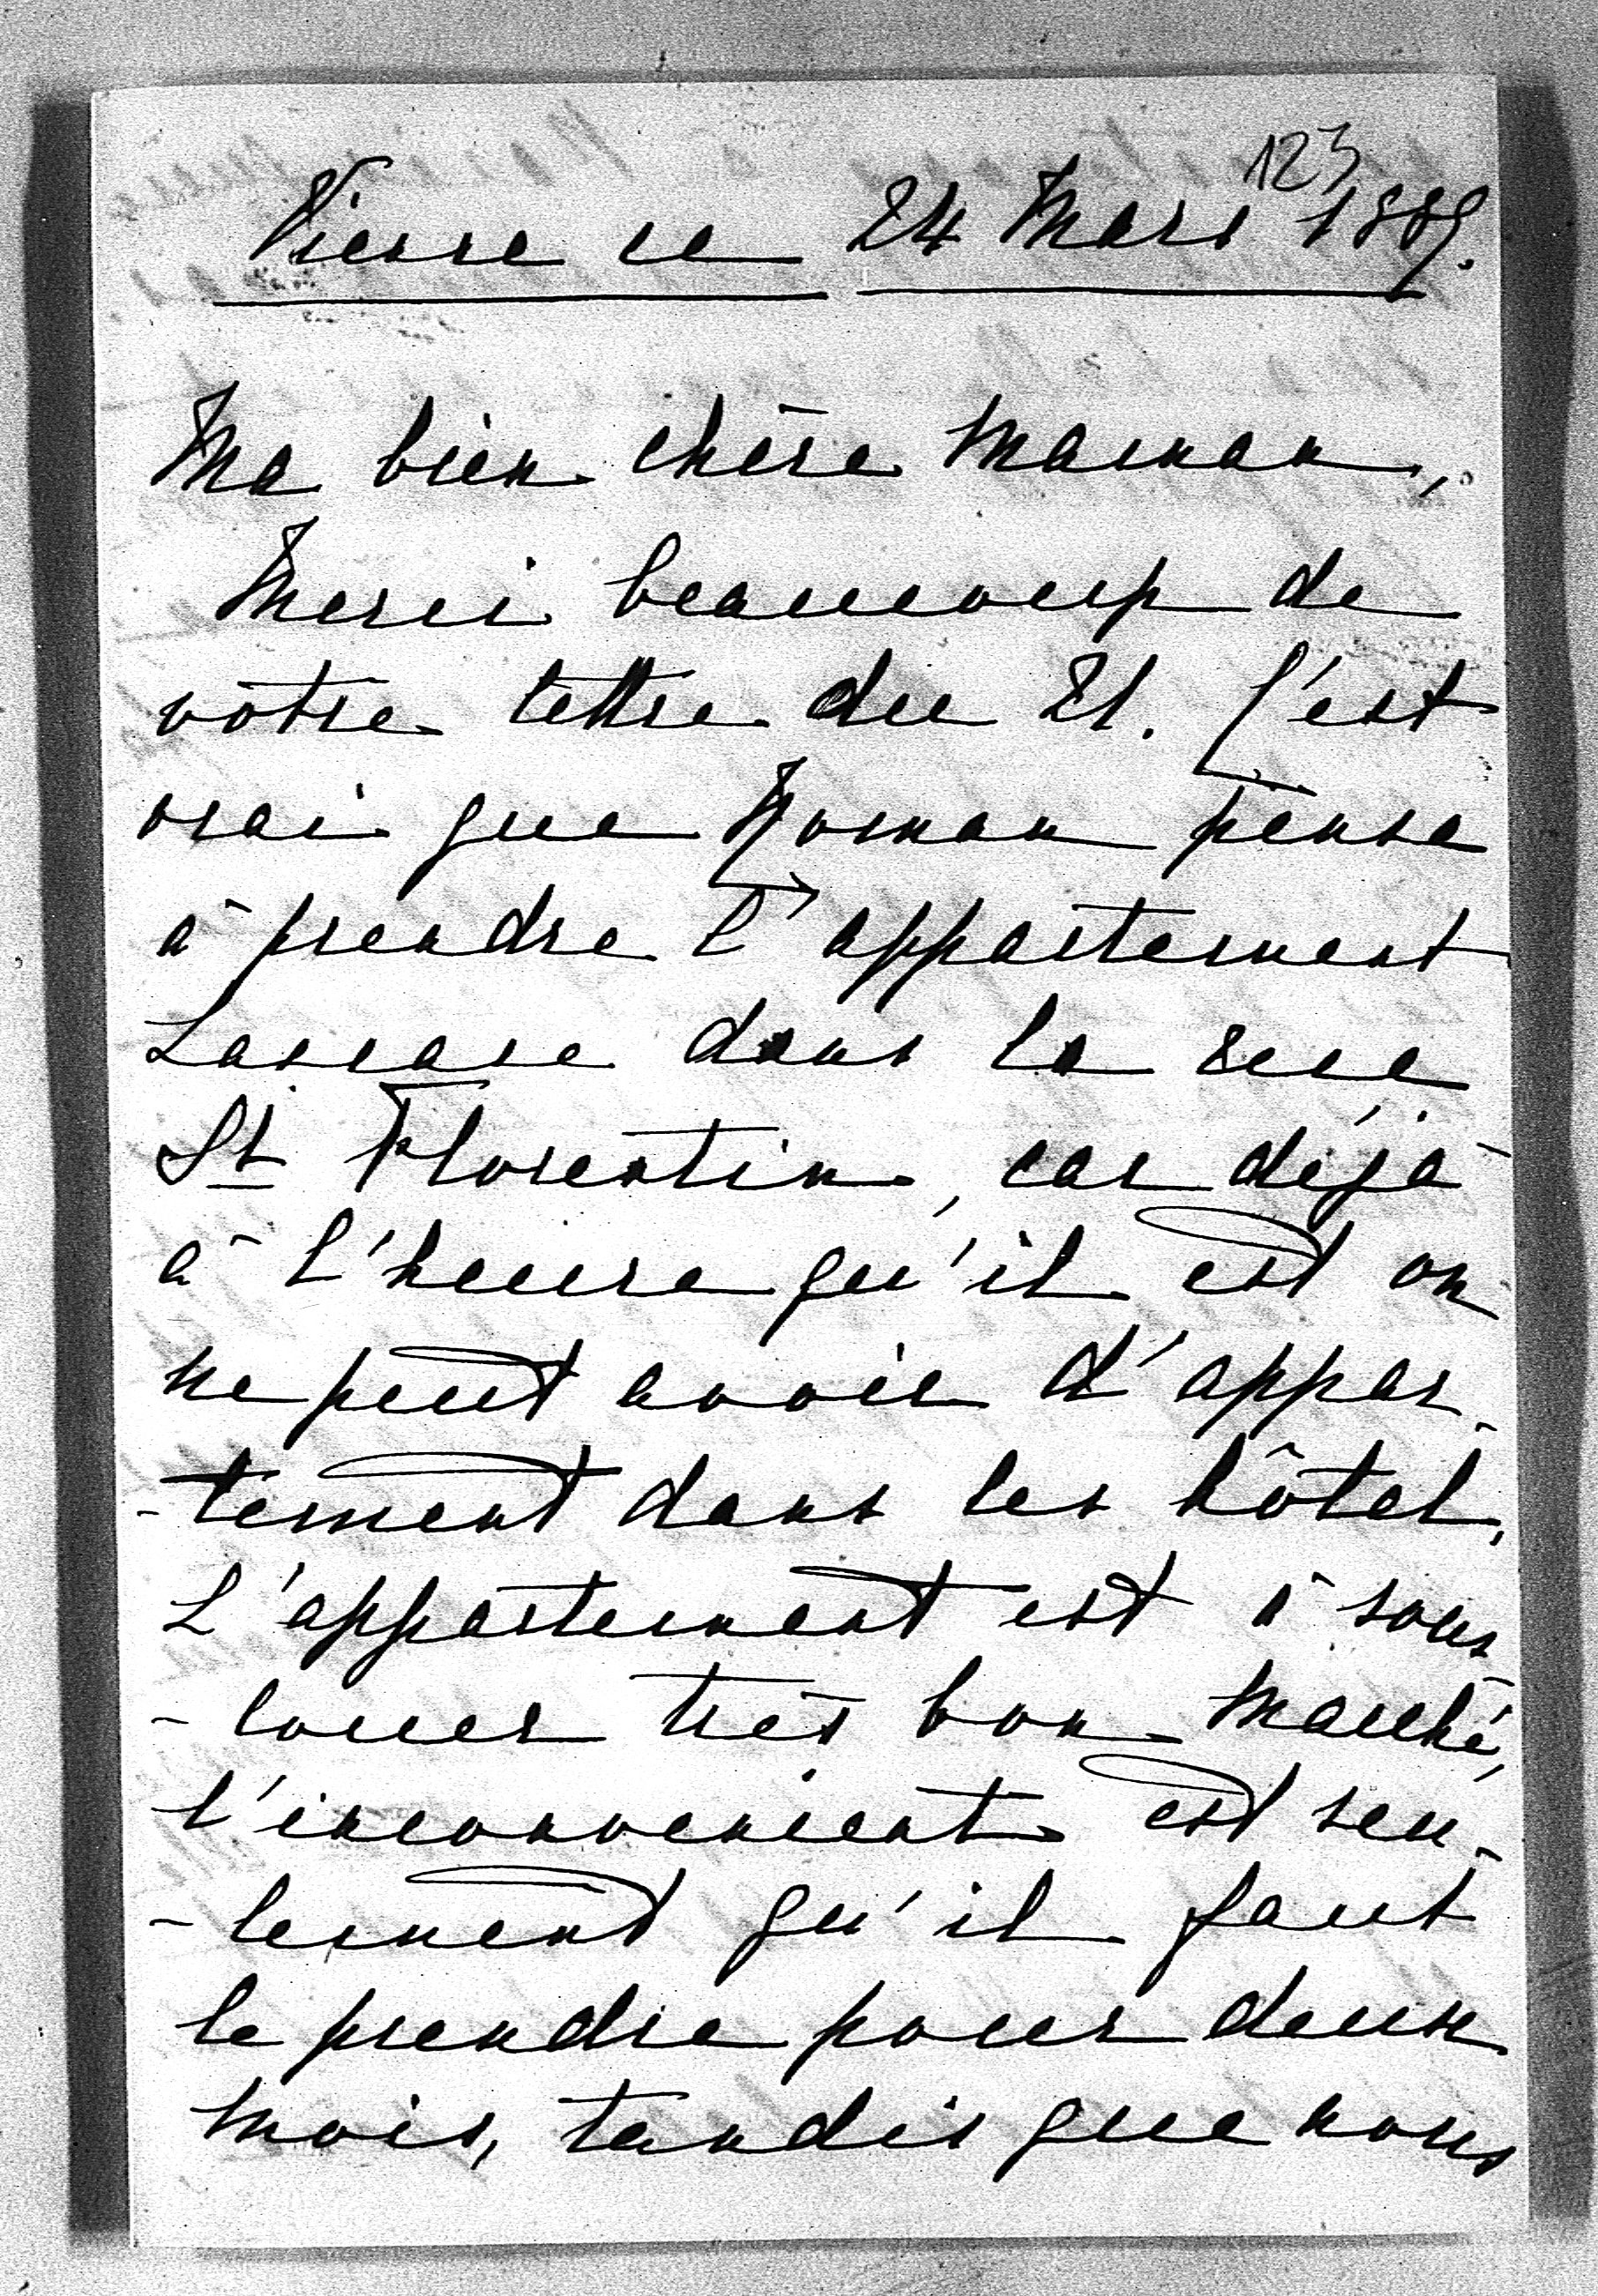 123
Vienne ce 24 Mars 1889.
Ma bien chère Maman,
Merci beaucoup de
vôtre lettre du 21. C'est
vrai que Roman pense
à prendre l'appartement
Lascase dans la rue
St Florentin, car déjà
à l'heure qu'il est on
ne peut avoir d'appar-
-tement dans les hôtel.
L'appartement est à sous
-louer très bon marché,
l'inconvenient est seu-
-lement qu'il faut
le prendre pour deux
mois, tandis que nous